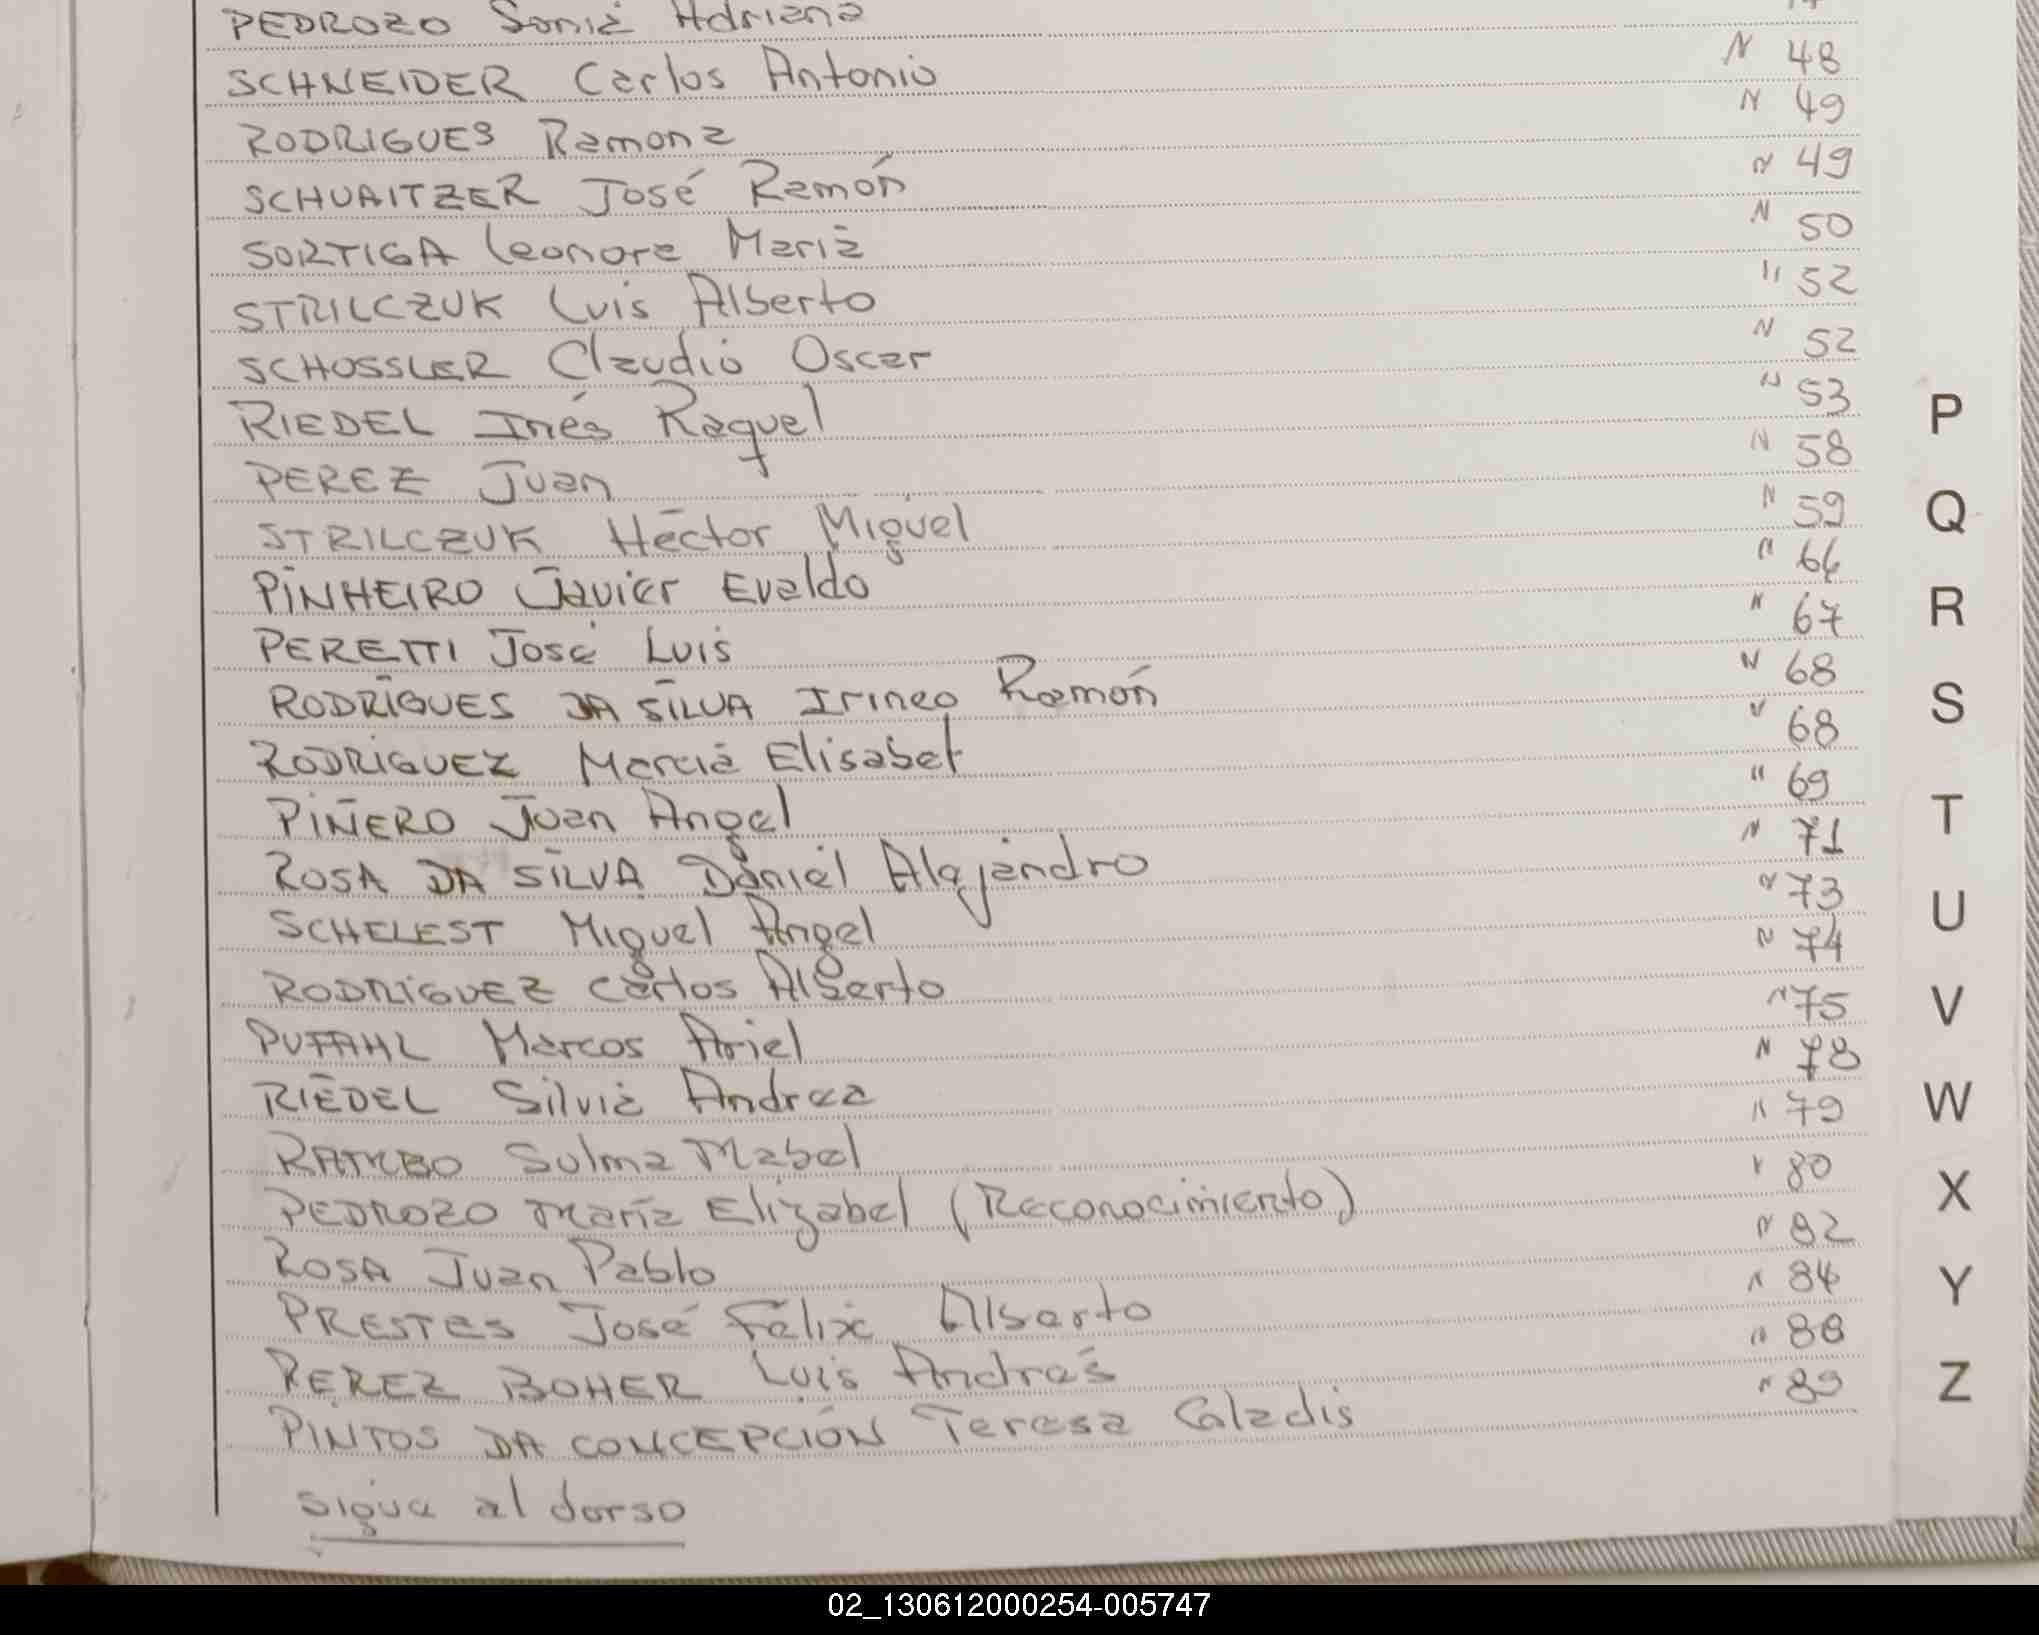 PEDROZO Sonia Adriana
SCHNEIDER Carlos Antonio " 48
RODRIGUES Ramona " 49
SCHUAITZER José Ramón " 49
SORTIGA Leonora María " 50
STRILCZUK Luis Alberto " 52
SCHOSSLER Claudio Oscar " 52
RIEDEL Inés Raquel " 53
PEREZ Juan " 58
STRILCZUK Héctor Miguel " 59
PINHEIRO Javier Evaldo " 64
PERETTI José Luis " 67
RODRIGUES DA SILVA Irineo Ramón " 68
RODRIGUEZ Marcia Elisabet " 68
PIÑERO Juan Angel " 69
ROSA DA SILVA Daniel Alejandro " 71
SCHELEST Miguel Angel " 73
RODRIGUEZ Carlos Alberto " 74
PUFAHL Marcos Ariel " 75
RIEDEL Silvia Andrea " 78
Sulma Mabel " 79
PEDROZO María Elizabel (Reconocimiento) " 80
ROSA Juan Pablo " 82
PRESTES José Felix Alberto " 84
PEREZ BOHER Luis Andrés " 88
PINTOS DA CONCEPCIÓN Teresa Caladis " 89
sigue al dorso
P
Q
R
S
T
U
V
W
X
Y
Z
02_130612000254-005747